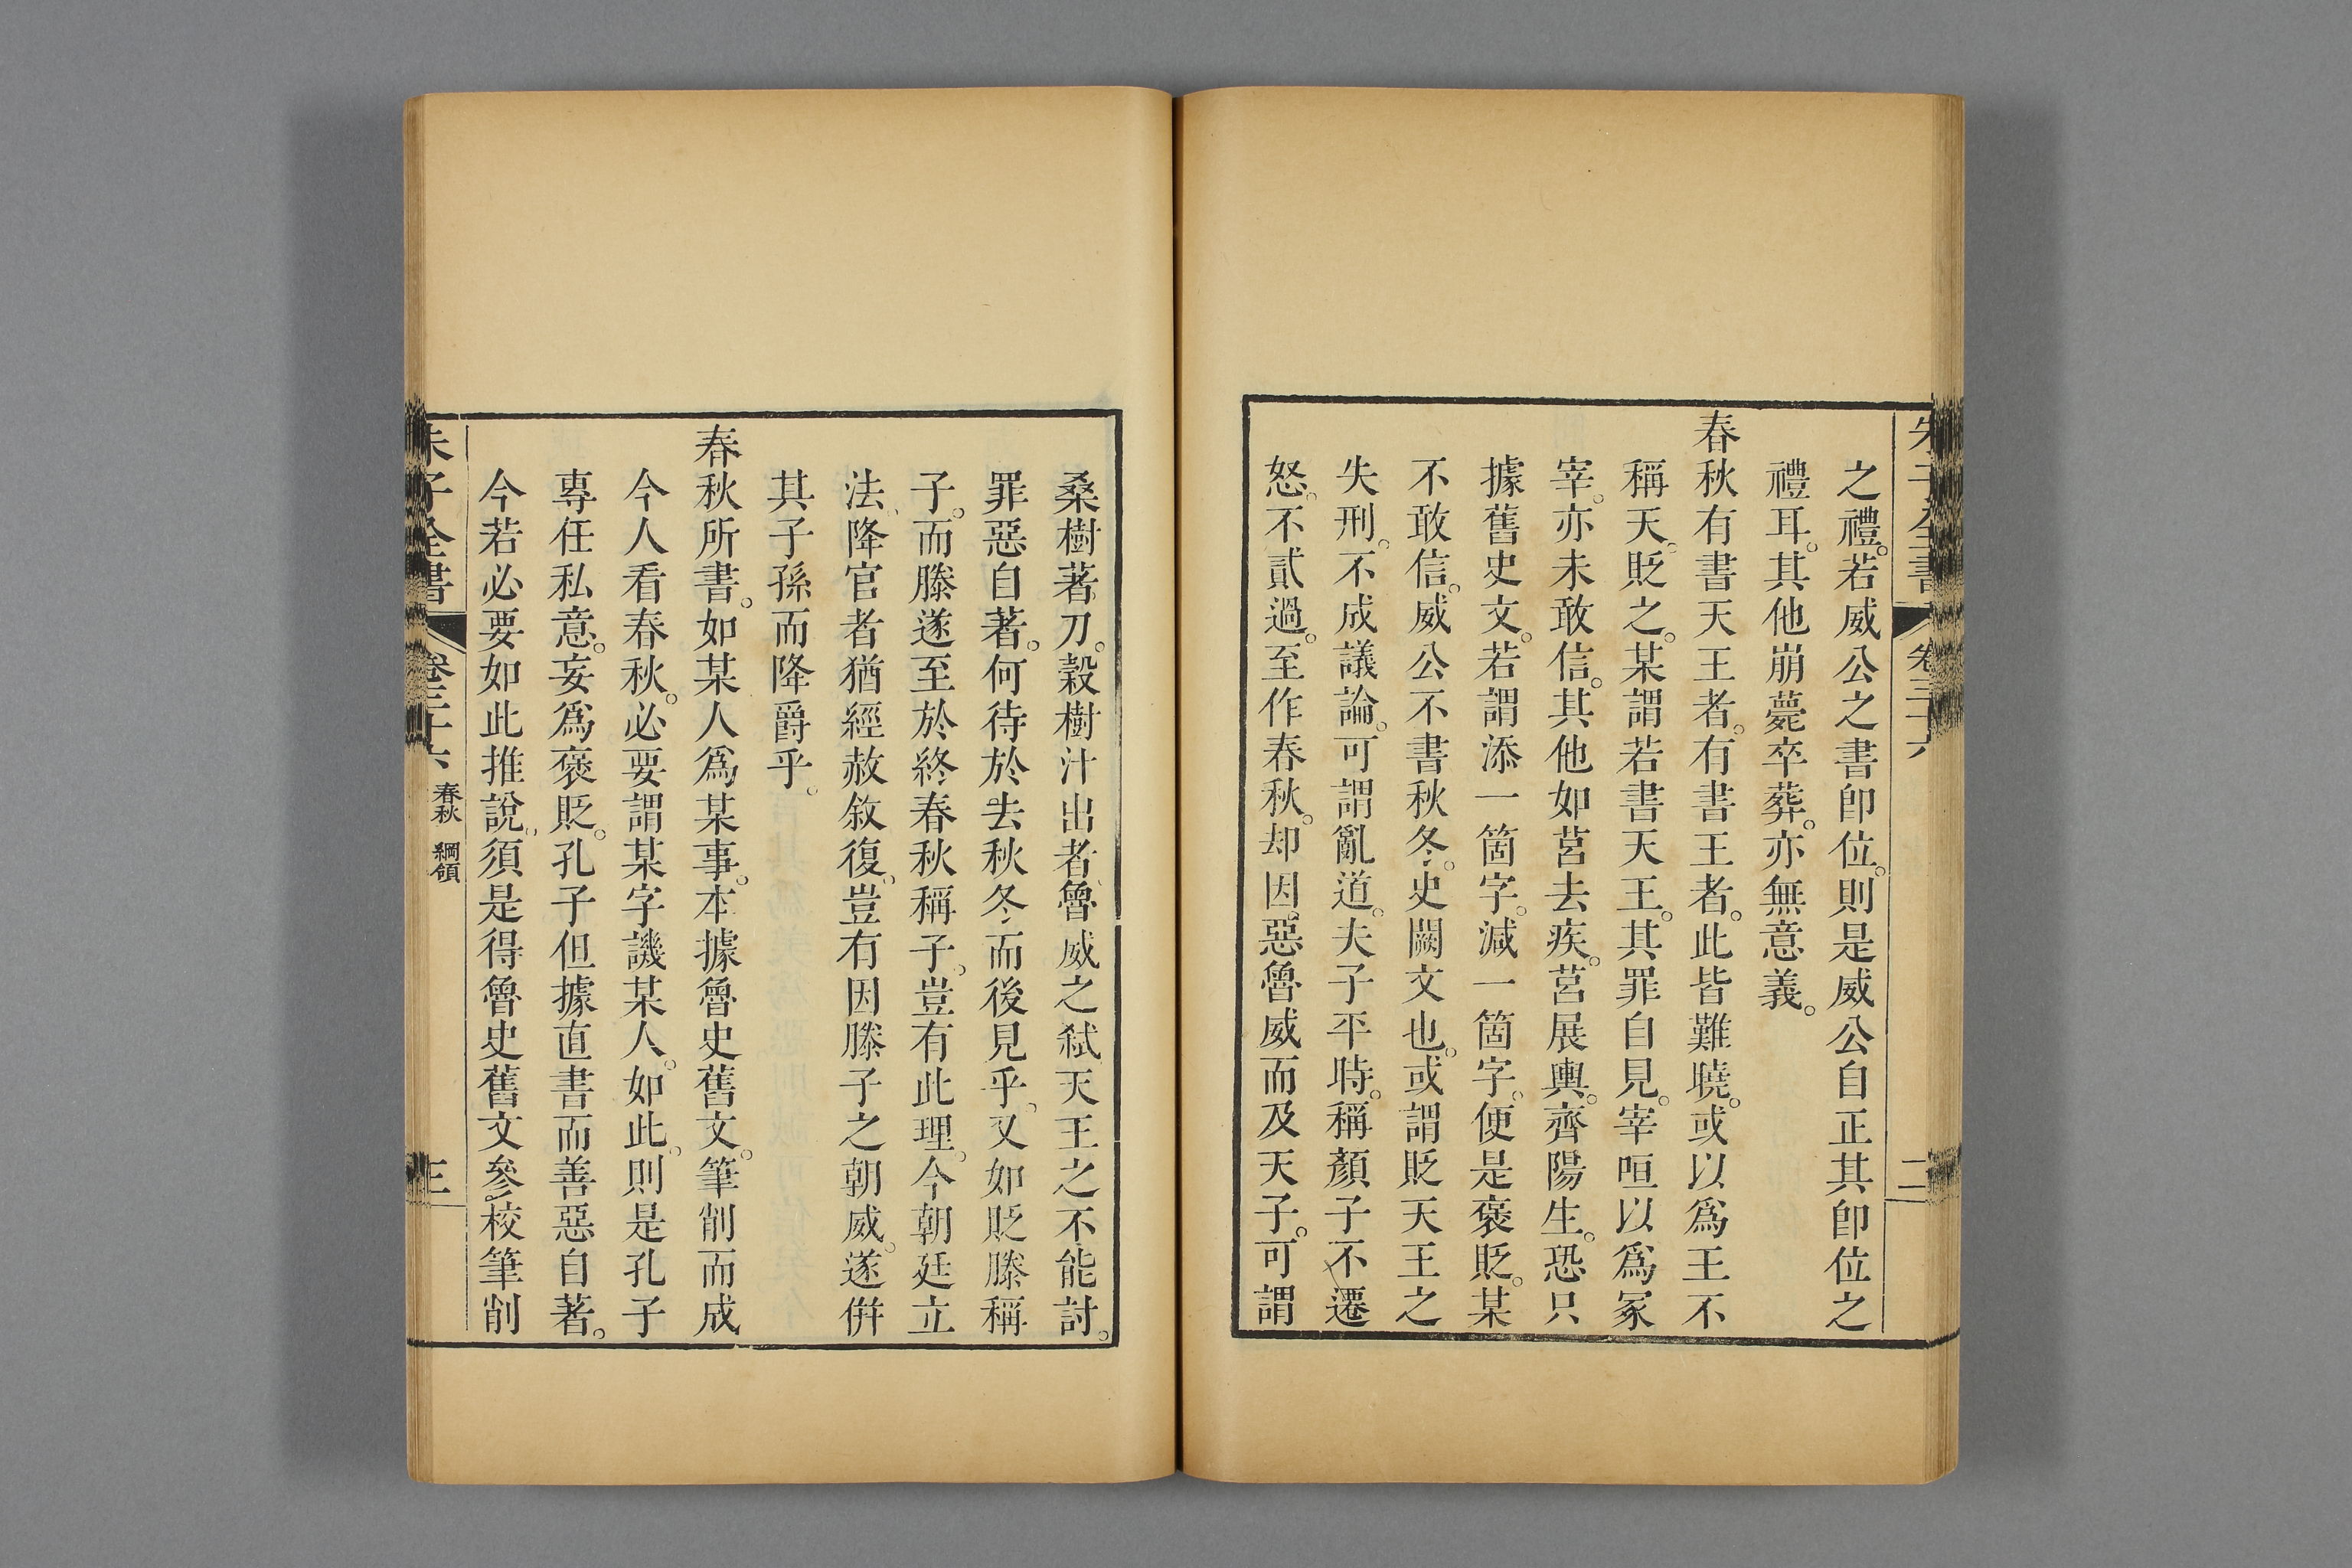 朱子全書 卷三十六 二
之禮。若威公之書卽位。則是威公自正其卽位之
禮耳。其他崩薨卒葬。亦無意義。
春秋有書天王者。有書王者。此皆難曉。或以爲王不
稱天。貶之。某謂若書天王。其罪自見。宰咺以爲冢
宰。亦未敢信。其他如莒去疾。莒展輿。齊陽生。恐只
據舊史文。若謂添一箇字。減一箇字。便是褒貶。某
不敢信。威公不書秋冬。史闕文也。或謂貶天王之
失刑。不成議論。可謂亂道。夫子平時。稱顏子不遷
怒。不貳過。至作春秋。却因惡魯威而及天子。可謂
桑樹著刀。穀樹汁出者。魯威之弑天王之不能討。
罪惡自著。何待於去秋冬而後見乎。又如貶滕稱
子。而滕遂至於終春秋稱子。豈有此理。今朝廷立
法。降官者猶經赦敘復。豈有因滕子之朝威。遂併
其子孫而降爵乎。
春秋所書。如某人爲某事。本據魯史舊文。筆削而成
今人看春秋。必要謂某字譏某人。如此。則是孔子
專任私意。妄爲褒貶。孔子但據直書而善惡自著。
今若必要如此推說。須是得魯史舊文參校筆削
朱子全書 卷三十六 春秋 綱領 三